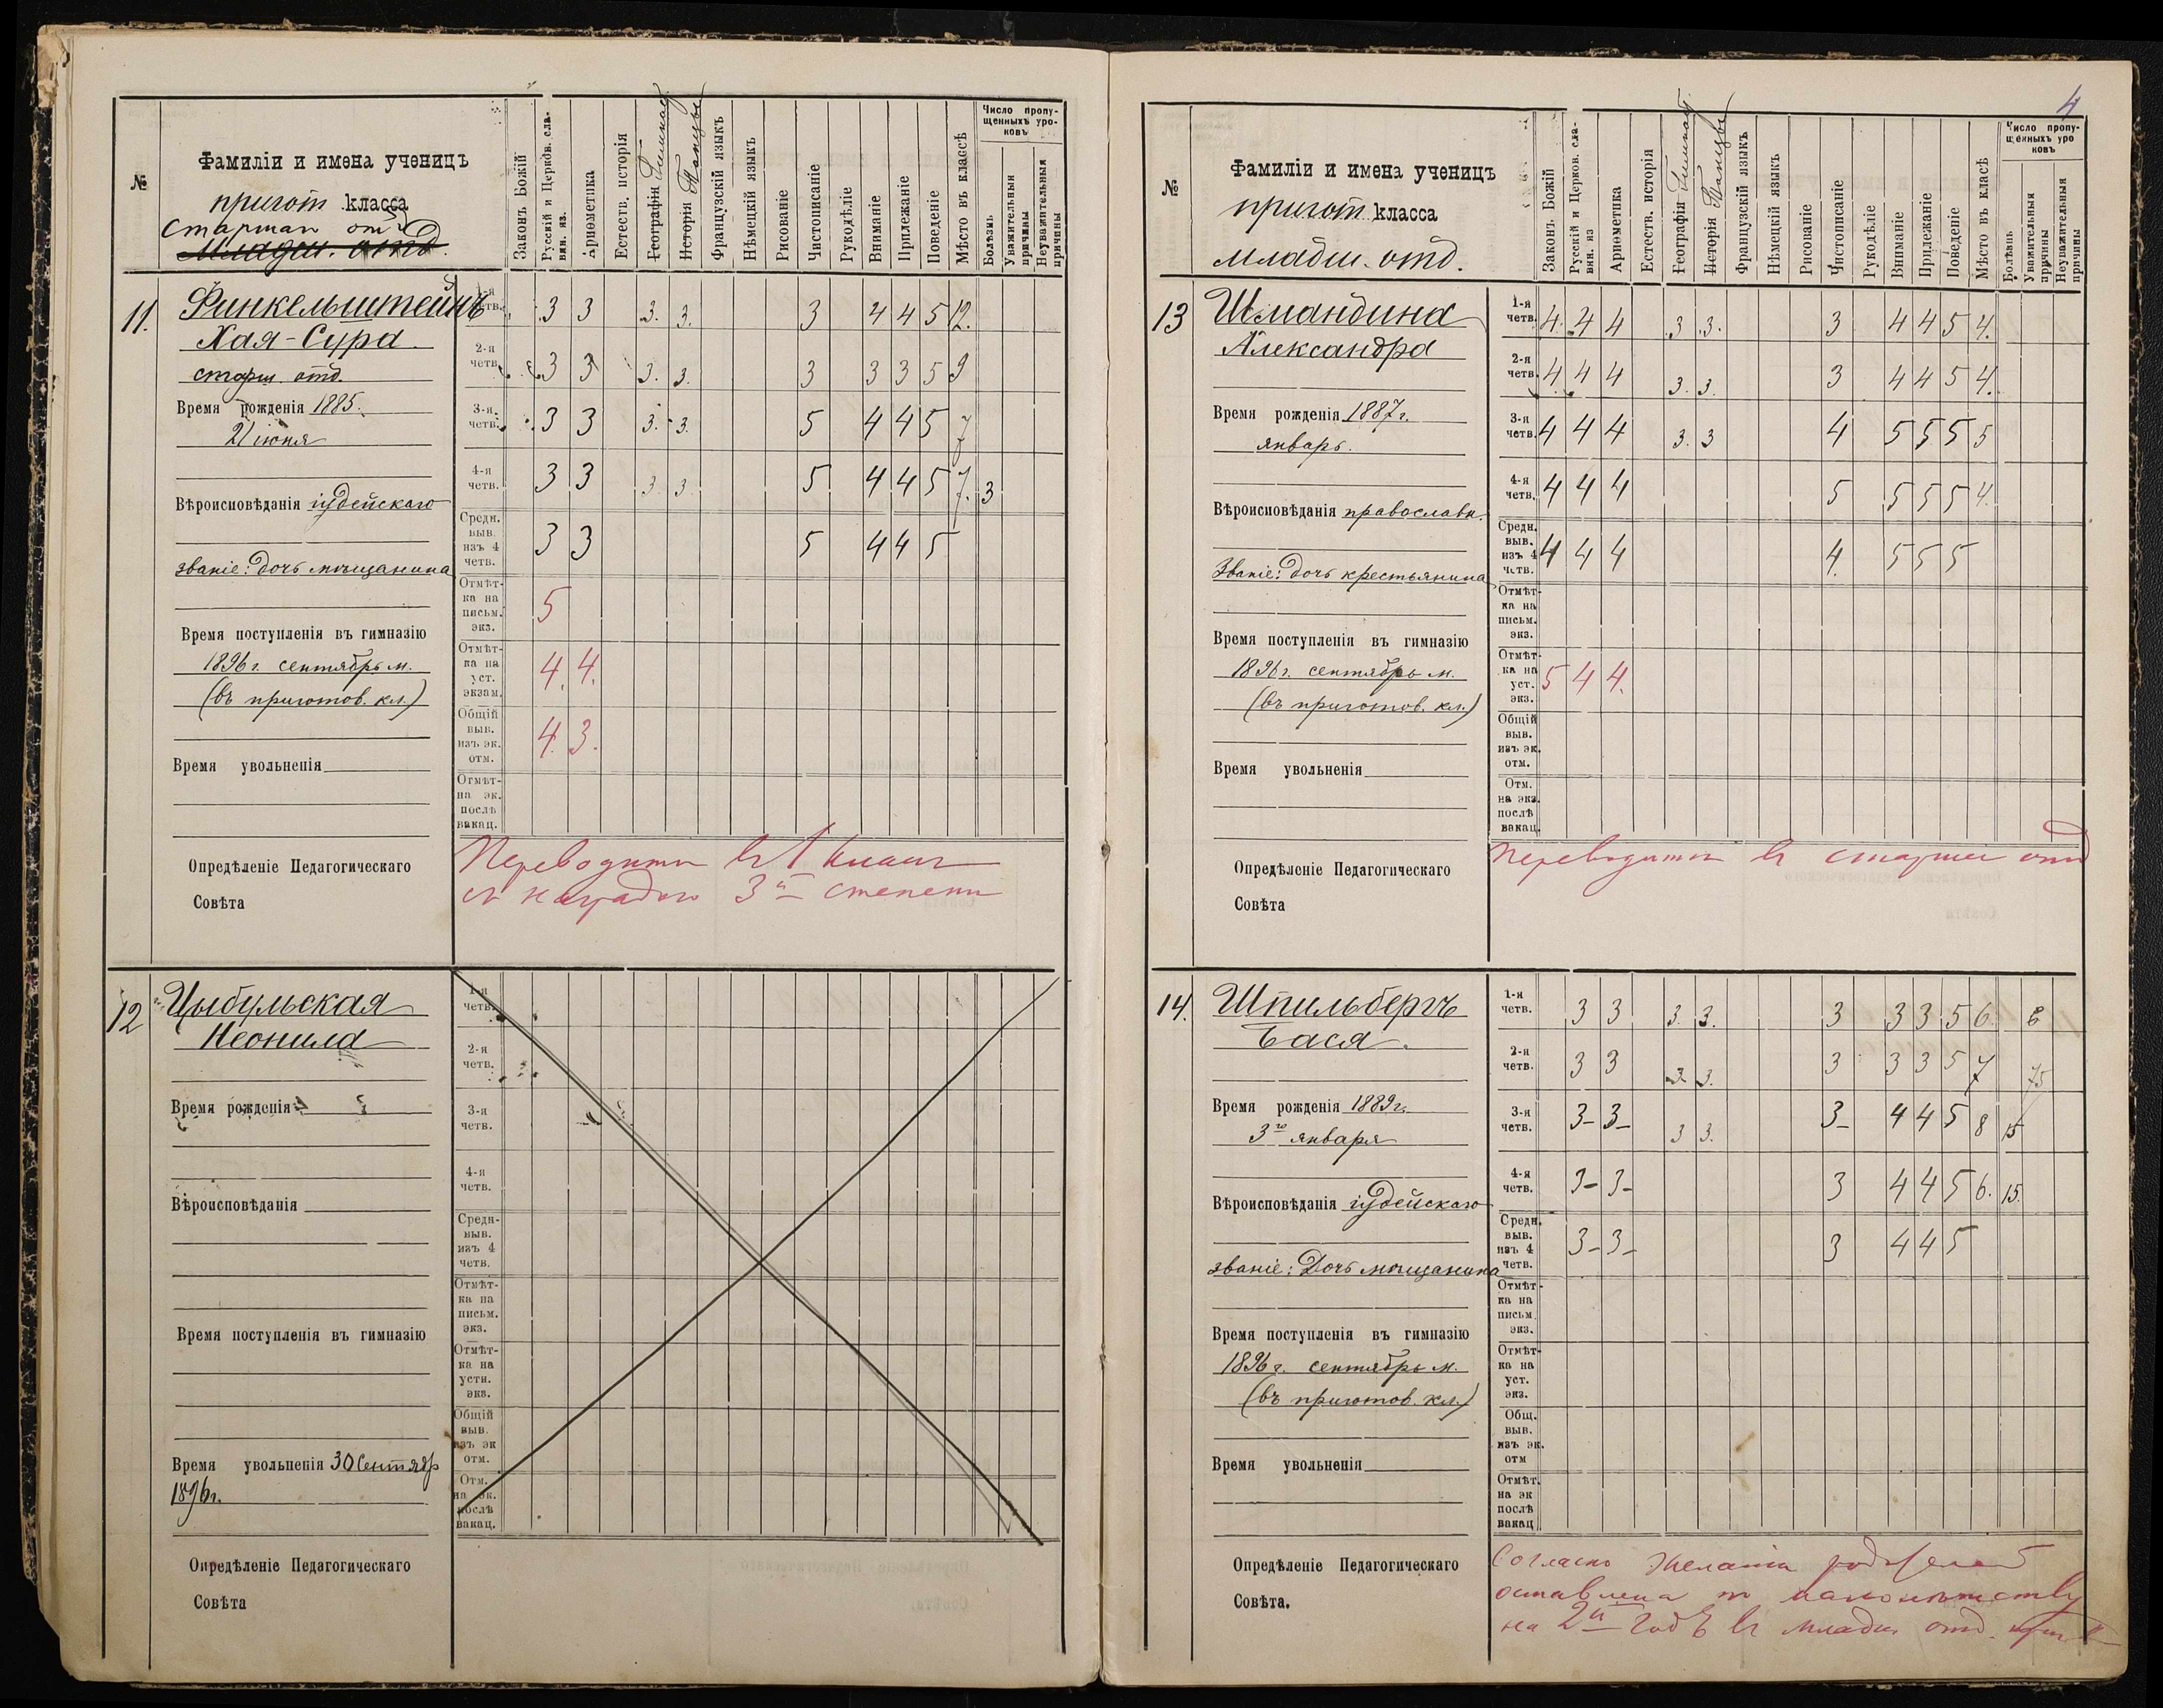 №
Фамиліи и имена ученицъ
пригот класса
Старшаго отд
Младш. отд.
Законъ Божій
Русскій и Церков. сла-
вян. яз.
Ариѳметика
Естеств. исторія
Географія Гимнаст.
Исторія Танцы
Французскій языкъ
Нѣмецкій языкъ
Рисованіе
Чистописаніе
Рукодѣліе
Вниманіе
Прилежаніе
Поведеніе
Мѣсто въ классѣ
Число пропу-
щенныхъ уро-
ковъ
Болѣзнь
Уважительныя
причины
Неуважительныя
причины
11.
Финкельштейнъ
Хая-Сура
старш. отд.
Время рожденія 1885.
21 іюня
Вѣроисповѣданія іудейскаго
званіе: дочь мѣщанина
Время поступленія въ гимназію
1896 г. сентябрь м.
(въ приготов. кл.)
Время увольненія
1-я четв. 3 3 3. 3. 3 4 4 5 12.
2-я четв. 3 3 3. 3. 3 3 3 5 9
3-я четв. 3 3 3. 3. 5 4 4 5 7
4-я четв. 3 3 3 3. 5 4 4 5 7. 3
Средн. выв. изъ 4 четв. 3 3 5 4 4 5
Отмѣт-ка на письм. экз. 5
Отмѣт-ка на уст. экзам. 4. 4.
Общій выв. изъ эк. отм. 4. 3.
Отмѣт- на эк. послѣ вакац.
Опредѣленіе Педагогическаго
Совѣта
Переводится въ 1 классъ
съ наградою 3й степени
12
Цыбульская
Неонила
Время рожденія
Вѣроисповѣданія
Время поступленія въ гимназію
Время увольненія 30 Сентябр
1896 г.
1-я четв.
2-я четв.
3-я четв.
4-я четв.
Средн- выв. изъ 4 четв.
Отмѣт-ка на письм. экз.
Отмѣт-ка на устн. экз.
Общій выв. изъ эк отм.
Отм. на эк. послѣ вакац.
Опредѣленіе Педагогическаго
Совѣта
4
№
Фамиліи и имена ученицъ
пригот класса
младш. отд.
Законъ Божій
Русскій и Церков. сла-
вян. яз
Ариѳметика
Естеств. исторія
Географія Гимнаст.
Исторія Танцы
Французскій языкъ
Нѣмецкій языкъ
Рисованіе
Чистописаніе
Рукодѣліе
Вниманіе
Прилежаніе
Поведеніе
Мѣсто въ класѣ
Число пропу-
щенныхъ уро
ковъ
Болѣзнь
Уважительныя
причины
Неуважительныя
причины
13
Шмандина
Александра
Время рожденія 1887 г.
январь.
Вѣроисповѣданія православн.
Званіе: дочь крестьянина
Время поступленія въ гимназію
1896 г. сентябрь м.
(въ приготов. кл.)
Время увольненія
1-я четв. 4. 4 4 3 3. 3 4 4 5 4.
2-я четв. 4 4 4 3. 3. 3 4 4 5 4.
3-я четв. 4 4 4 3. 3 4 5 5 5 5
4-я четв. 4 4 4 5 5 5 5 4.
Средн. выв. изъ 4 четв. 4 4 4 4. 5 5 5
Отмѣт-ка на письм. экз.
Отмѣт-ка на уст. экз. 5 4 4.
Общій выв. изъ эк. отм.
Отм. на экз. послѣ вакац.
Опредѣленіе Педагогическаго
Совѣта
Переводится въ старшее отд
14.
Шпильбергъ
Бася.
Время рожденія 1889 г.
3го января
Вѣроисповѣданія іудейскаго
званіе: Дочь мѣщанина
Время поступленія въ гимназію
1896 г. сентябрь м.
(въ приготов. кл.)
Время увольненія
1-я четв. 3 3 3. 3. 3 3 3 5 6. 6
2-я четв. 3 3 3. 3. 3 3 3 5 7 75
3-я четв. 3- 3- 3 3. 3- 4 4 5 8 15
4-я четв. 3- 3- 3 4 4 5 6. 15.
Средн. выв. изъ 4 четв. 3- 3- 3 4 4 5
Отмѣт-ка на письм. экз.
Отмѣт-ка на уст. экз.
Общ. выв. изъ эк. отм
Отмѣт. на эк послѣ вакац
Опредѣленіе Педагогическаго
Совѣта.
Согласно желанія родителей
оставлена по малолѣтству
на 2й годъ въ младш отд.